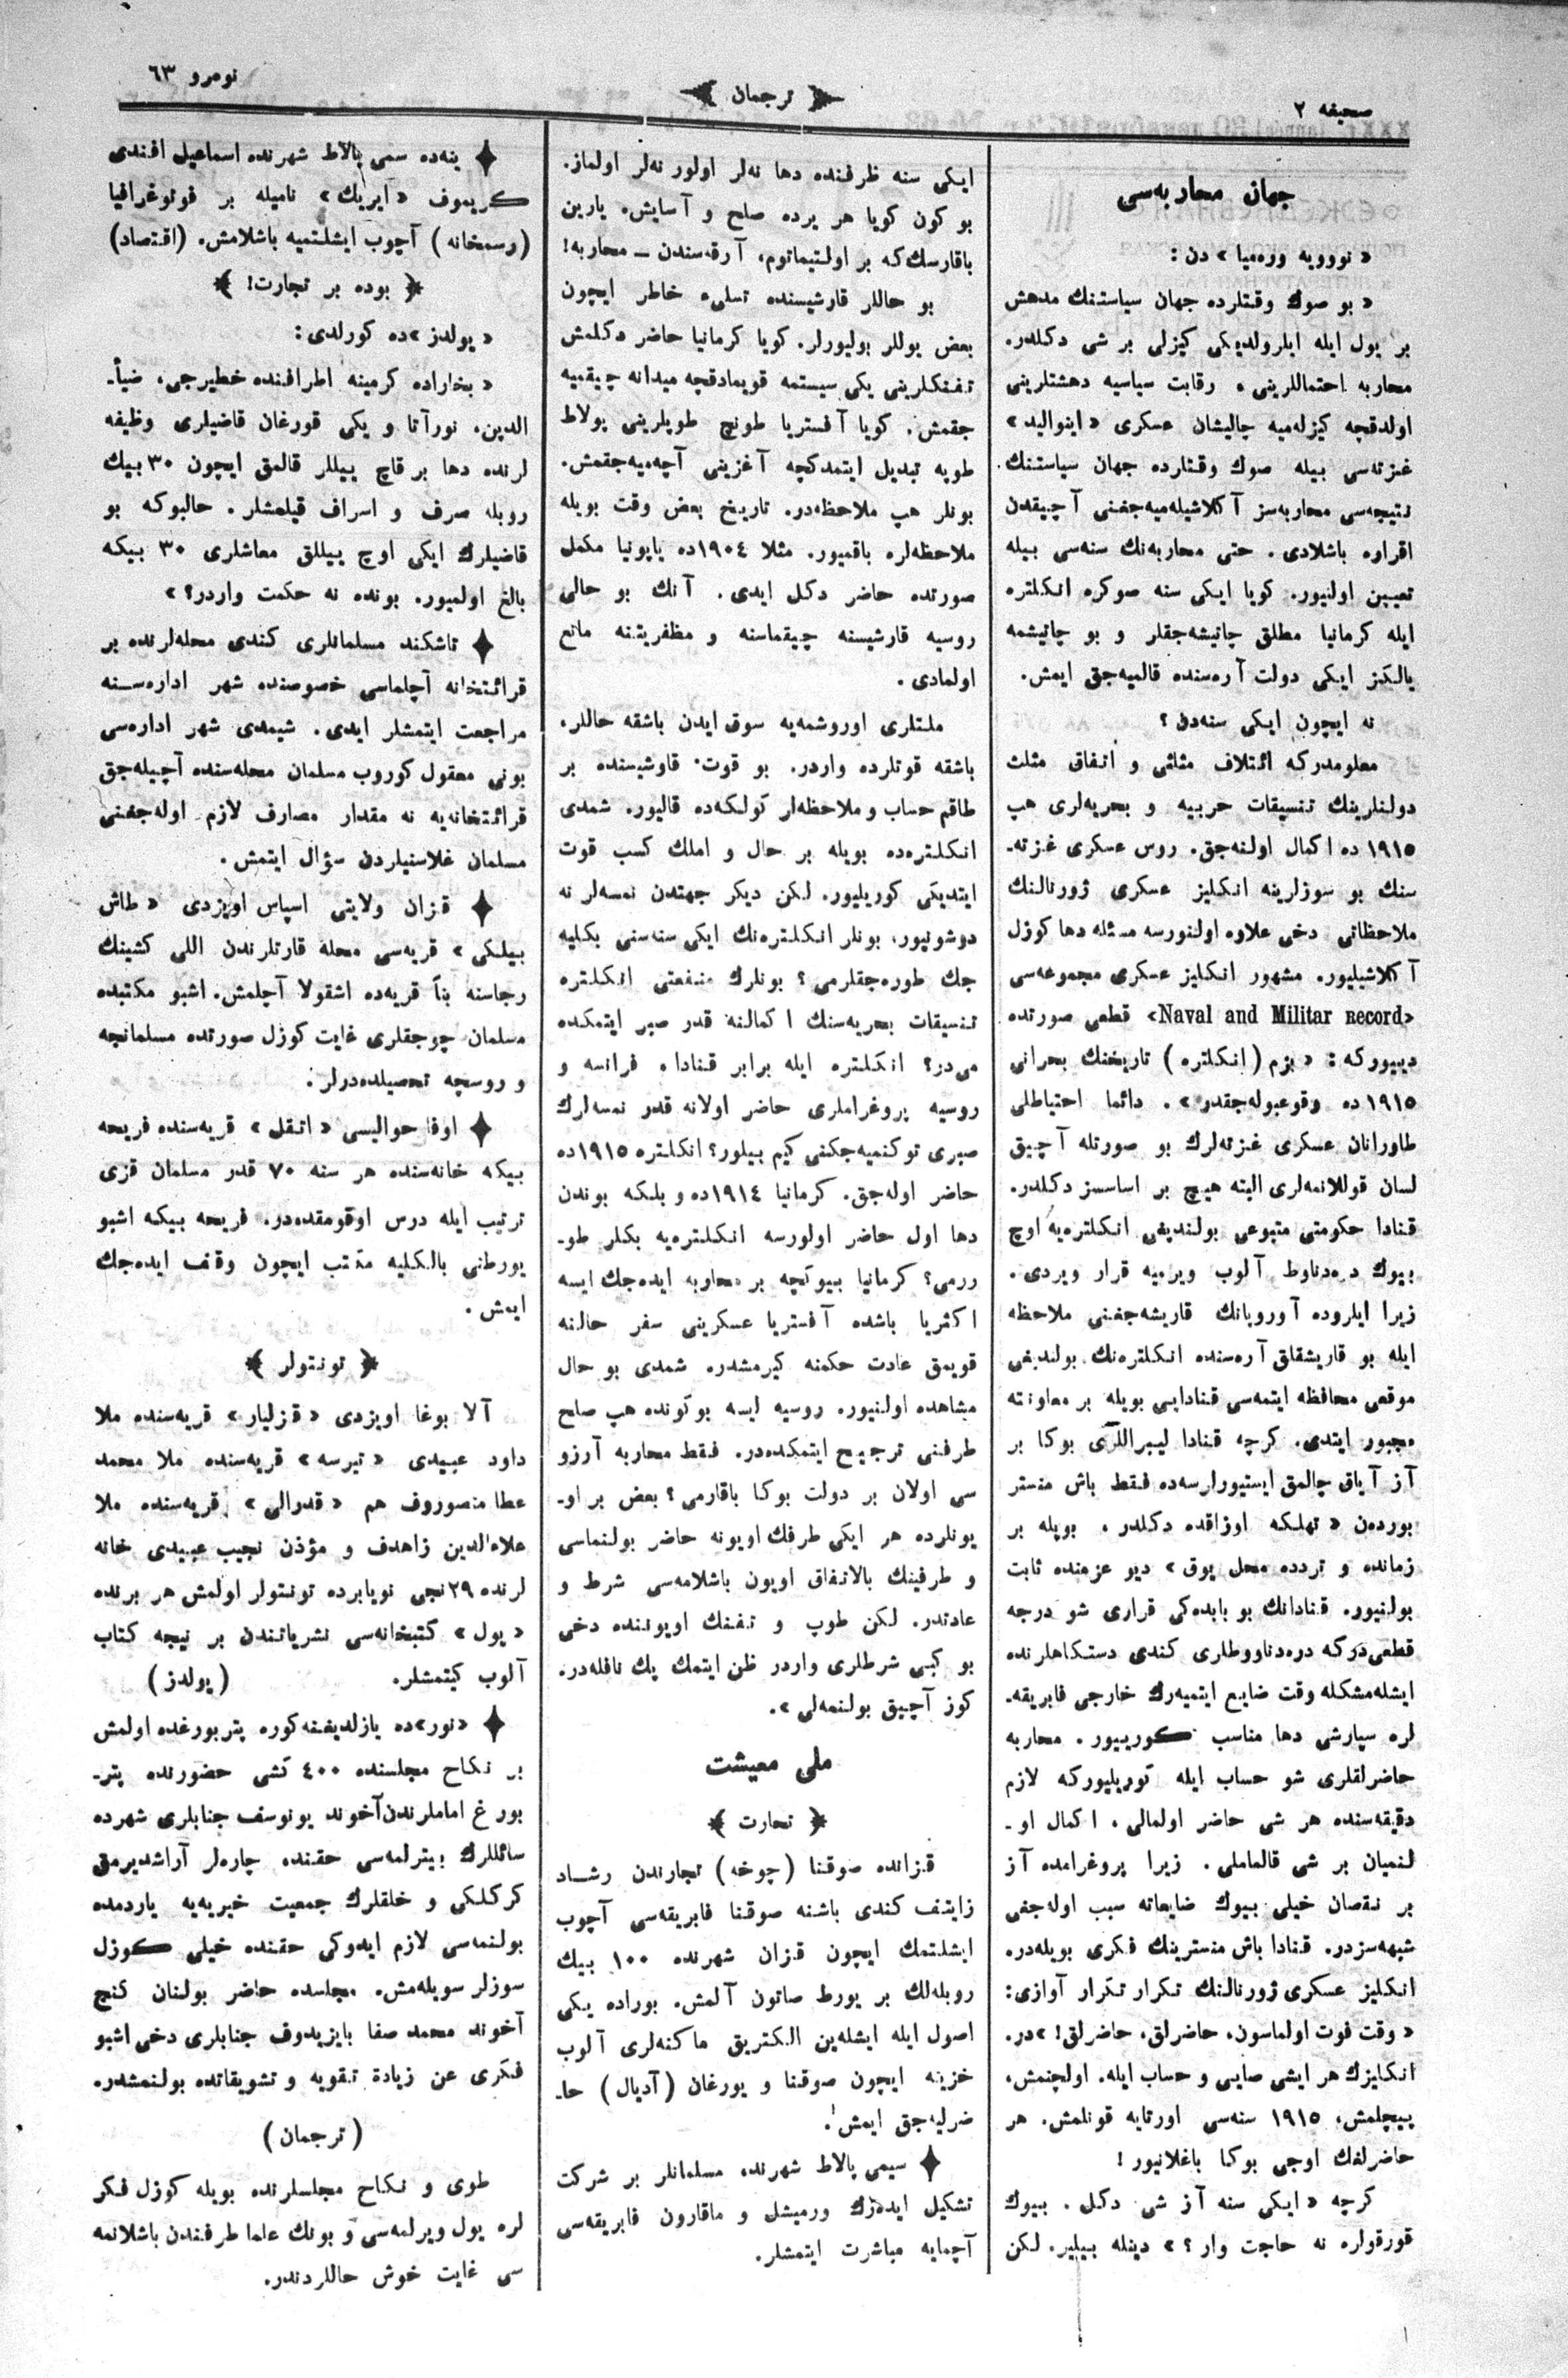 صحیفه ٢
ترجمان
نومرو ٦٣
جهان محاربه‌سی
« نوویه وره‌میا » دن :
« بو صوك وقتلرده جهان سیاستنك مدهش
بر یول ایله ایلرولدیكی كیزلی بر شی دكلدر.
محاربه احتماللرینی ، رقابت سیاسیه دهشتلرینی
اولدقچه كیزله‌میه چالیشان عسكری « اینوالید »
غزته‌سی بیله صوك وقتارده جهان سیاستنك
نتیجه‌سی محاربه‌سز آكلاشیله‌میه‌جغنی آچیقدن
اقراره باشلادی . حتی محاربه‌نك سنه‌سی بیله
تعیین اولنیور. كویا ایكی سنه صوكره انكلتره
ایله كرمانیا مطلق چاتیشه‌جقلر و بو چاتیشمه
یالكز ایكی دولت آره‌سنده قالمیه‌جق ایمش.
نه ایچون ایكی سنه‌دن ؟
معلومدركه ائتلاف مثلثی و اتفاق مثلث
دولتلرینك تنسیقات حربیه و بحریه‌لری هپ
١٩١٥ ده اكمال اولنه‌جق. روس عسكری غزته-
سنك بو سوزلرینه انكلیز عسكری ژورنالنك
ملاحظاتی دخی علاوه اولنورسه مسئله دها كوزل
آكلاشیلیور. مشهور انكلیز عسكری مجموعه‌سی
«Naval and Militar record» قطعی صورتده
دییوركه : « بزم ( انكلتره ) تاریخنك بحرانی
١٩١٥ ده وقوعبوله‌جقدر » . دائما احتیاطلی
طاورانان عسكری غزته‌لرك بو صورتله آچیق
لسان قوللانمه‌لری البته هیچ بر اساسسز دكلدر.
قنادا حكومتی متبوعی بولندیغی انكلتره‌یه اوچ
بیوك دره‌دناوط آلوب ویرمیه قرار ویردی .
زیرا ایلروده آوروپانك قاریشه‌جغنی ملاحظه
ایله بو قاریشقاق آره‌سنده انكلتره‌نك بولندیغی
موقعی محافظه ایتمه‌سی قنادایی بویله بر معاونته
مجبور ایتدی. كرچه قنادا لیبراللری بوكا بر
آز آیاق چالمق ایستیورلرسه‌ده فقط باش منستر
بورده‌ن « تهلكه اوزاقده دكلدر ، بویله بر
زمانده و تردده محل یوق » دیو عزمنده ثابت
بولنیور. قنادانك بو بابده‌كی قراری شو درجه
قطعی‌دركه دره‌دناووطلری كندی دستكاهلرنده
ایشله‌مشكله وقت ضایع ایتمیه‌رك خارجی فابریقه-
لره سپارشی دها مناسب كورییور . محاربه
حاضرلقلری شو حساب ایله كوریلیوركه لازم
دقیقه‌سنده هر شی حاضر اولمالی ، اكمال او-
لنمیان بر شی قالماملی . زیرا پروغرامده آز
بر نقصان خیلی بیوك ضایعاته سبب اوله‌جغی
شبهه‌سزدر. قنادا باش منسترینك فكری بویله‌در.
انكلیز عسكری ژورنالنك تكرار تكرار آوازی :
« وقت فوت اولماسون، حاضرلق، حاضرلق! »در.
انكلیزك هر ایشی صایی و حساب ایله. اولچنمش،
پیچلمش، ١٩١٥ سنه‌سی اورتایه قونلمش. هر
حاضرلغك اوجی بوكا باغلانیور !
كرچه « ایكی سنه آز شی دكل . بیوك
قورقولره نه حاجت وار ؟ » دینله بیلیر. لكن
ایكی سنه ظرفنده دها نه‌لر اولور نه‌لر اولماز.
بو كون كویا هر یرده صلح و آسایش، یارین
باقارسك‌كه بر اولتیماتوم، آرقه‌سندن — محاربه!
بو حاللر قارشیسنده تسلیء خاطر ایچون
بعض یوللر بولیورلر. كویا كرمانیا حاضر دكلمش
تفنكلرینی یكی سیستمه قویمادقچه میدانه چیقمیه
جقمش . كویا آفستریا طونچ طوپلرینی بولاط
طوپه تبدیل ایتمدكچه آغزینی آچه‌میه‌جقمش.
بونلر هپ ملاحظه‌در. تاریخ بعض وقت بویله
ملاحظه‌لره باقمیور. مثلا ١٩٠٤ده یاپونیا مكمل
صورتده حاضر دكل ایدی . آنك بو حالی
روسیه قارشیسنه چیقماسنه و مظفریتنه مانع
اولمادی .
ملتلری اوروشمه‌یه سوق ایدن باشقه حاللر،
باشقه قوتلرده واردر. بو قوت قاوشیسنده بر
طاقم حساب و ملاحظه‌لر كولكه‌ده قالیور. شمدی
انكلتره‌ده بویله بر حال و املك كسب قوت
ایتدیكی كوریلیور. لكن دیكر جهتدن نمسه‌لر نه
دوشونیور، بونلر انكلتره‌نك ایكی سنه‌سنی بكلیه
جك طوره‌جقلرمی ؟ بونلرك منفعتی انكلتره
تنسیقات بحریه‌سنك اكمالنه قدر صبر ایتمكده
می‌در؟ انكلتره ایله برابر قنادا، فرانسه و
روسیه پروغراملری حاضر اولانه قدر نمسه‌لرك
صبری توكنمیه‌جكنی كیم بیلور؟ انكلتره ١٩١٥ده
حاضر اوله‌جق. كرمانیا ١٩١٤ده و بلكه بوندن
دها اول حاضر اولورسه انكلتره‌یه بكلر طو-
ررمی؟ كرمانیا بیوكچه بر محاربه ایده‌جك ایسه
اكثریا باشده آفستریا عسكرینی سفر حالنه
قویمق عادت حكمنه كیرمشدر، شمدی بو حال
مشاهده اولنیور. روسیه ایسه بوكونده هپ صلح
طرفنی ترجیح ایتمكده‌در. فقط محاربه آرزو
سی اولان بر دولت بوكا باقارمی ؟ بعض بر او-
یونلرده هر ایكی طرفك اویونه حاضر بولنماسی
و طرفینك بالاتفاق اویون باشلامه‌سی شرط و
عادتدر. لكن طوپ و تفنك اویوننده دخی
بو كبی شرطلری واردر ظن ایتمك پك نافله‌در.
كوز آچیق بولنمه‌لی ».
ملی معیشت
﴿ تجارت ﴾
قزانده صوقنا ( چوخه ) تجارندن رشاد
زایتف كندی باشنه صوقنا فابریقه‌سی آچوب
ایشلتمك ایچون قزان شهرنده ١٠٠ بیك
روبله‌لك بر یورط صاتون آلمش. بوراده یكی
اصول ایله ایشله‌ین الكتریق ماكنه‌لری آلوب
خزینه ایچون صوقنا و یورغان ( آدیال ) حا-
ضرلیه‌جق ایمش.
سیمی پالاط شهرنده مسلمانلر بر شركت
تشكیل ایده‌رك ورمیشل و ماقارون فابریقه‌سی
آچمایه مباشرت ایتمشلر.
ینه‌ده سمی پالاط شهرنده اسماعیل افندی
كریموف « ایریك » نامیله بر فوتوغرافیا
(رسمخانه) آچوب ایشلتمیه باشلامش. (اقتصاد)
﴿ بوده بر تجارت! ﴾
« یولدز »ده كورلدی :
« بخاراده كرمینه اطرافنده خطیرجی، ضیأ-
الدین، نورآتا و یكی قورغان قاضیلری وظیفه
لرنده دها بر قاچ ییللر قالمق ایچون ٣٠ بیك
روبله صرف و اسراف قیلمشلر . حالبوكه بو
قاضیلرك ایكی اوچ ییللق معاشلری ٣٠ بیكه
بالغ اولمیور. بونده نه حكمت واردر؟ »
تاشكند مسلمانلری كندی محله‌لرنده بر
قرائتخانه آچلماسی خصوصنده شهر اداره‌سنه
مراجعت ایتمشلر ایدی. شیمدی شهر اداره‌سی
بونی معقول كوروب مسلمان محله‌سنده آچیله‌جق
قرائتخانه‌یه نه مقدار مصارف لازم اوله‌جغنی
مسلمان غلاسنیلردن سؤال ایتمش .
قزان ولایتی اسپاس اویزدی « طاش
بیلكی » قریه‌سی محله قارتلرندن اللی كشینك
رجاسنه بنأ قریه‌ده اشقولا آچلمش. اشبو مكتبده
مسلمان چوجقلری غایت كوزل صورتده مسلمانچه
و روسچه تحصیلده‌درلر.
اوفا حوالیسی « اتقل » قریه‌سنده فریحه
بیكه خانه‌سنده هر سنه ٧٠ قدر مسلمان قزی
ترتیب ایله درس اوقومقده‌در. فریحه بیكه اشبو
یورطنی بالكلیه مكتب ایچون وقف ایده‌جك
ایمش .
﴿ تونتولر ﴾
آلا بوغا اویزدی « قزلیار » قریه‌سنده ملا
داود عبیدی « تیرسه » قریه‌سنده ملا محمد
عطا منصوروف هم « قدرالی » قریه‌سنده ملا
علاءالدین زاهدف و مؤذن نجیب عبیدی خانه
لرنده ٢٩نجی نویابرده تونتولر اولمش هر برنده
« یول » كتبخانه‌سی نشریاتندن بر نیجه كتاب
آلوب كیتمشلر. ( یولدز )
«نور»ده یازلدیغنه‌كوره پتربورغده اولمش
بر نكاح مجلسنده ٤٠٠ كشی حضورنده پتر-
بورغ اماملرندن آخوند یونوسف جنابلری شهرده
سائللرك بیترلمه‌سی حقنده چاره‌لر آراشدیرمق
كركلكی و خلقلرك جمعیت خیریه‌یه یاردمده
بولنمه‌سی لازم ایدوكی حقنده خیلی كوزل
سوزلر سویله‌مش. مجلسده حاضر بولنان كنج
آخوند محمد صفا بایزیدوف جنابلری دخی اشبو
فكری عن زیادة تقویه و تشویقاتده بولنمشدر.
( ترجمان )
طوی و نكاح مجلسلرنده بویله كوزل فكر
لره یول ویرلمه‌سی و بونك علما طرفندن باشلانمه
سی غایت خوش حاللردندر.